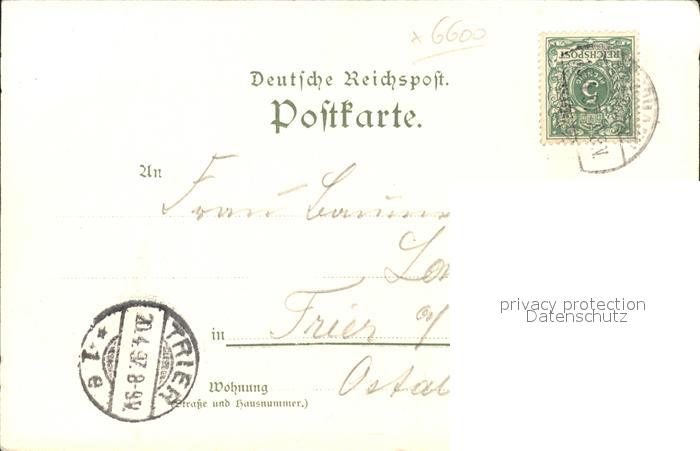 6600
Deutsche Reichspost.
Postkarte.
REICHSPOST
5
An
Frau
in Trier a/
Wohnung
(Straße und Hausnummer.)
TRIER
20.4.97. 8-9V.
* 1 e
privacy protection
Datenschutz